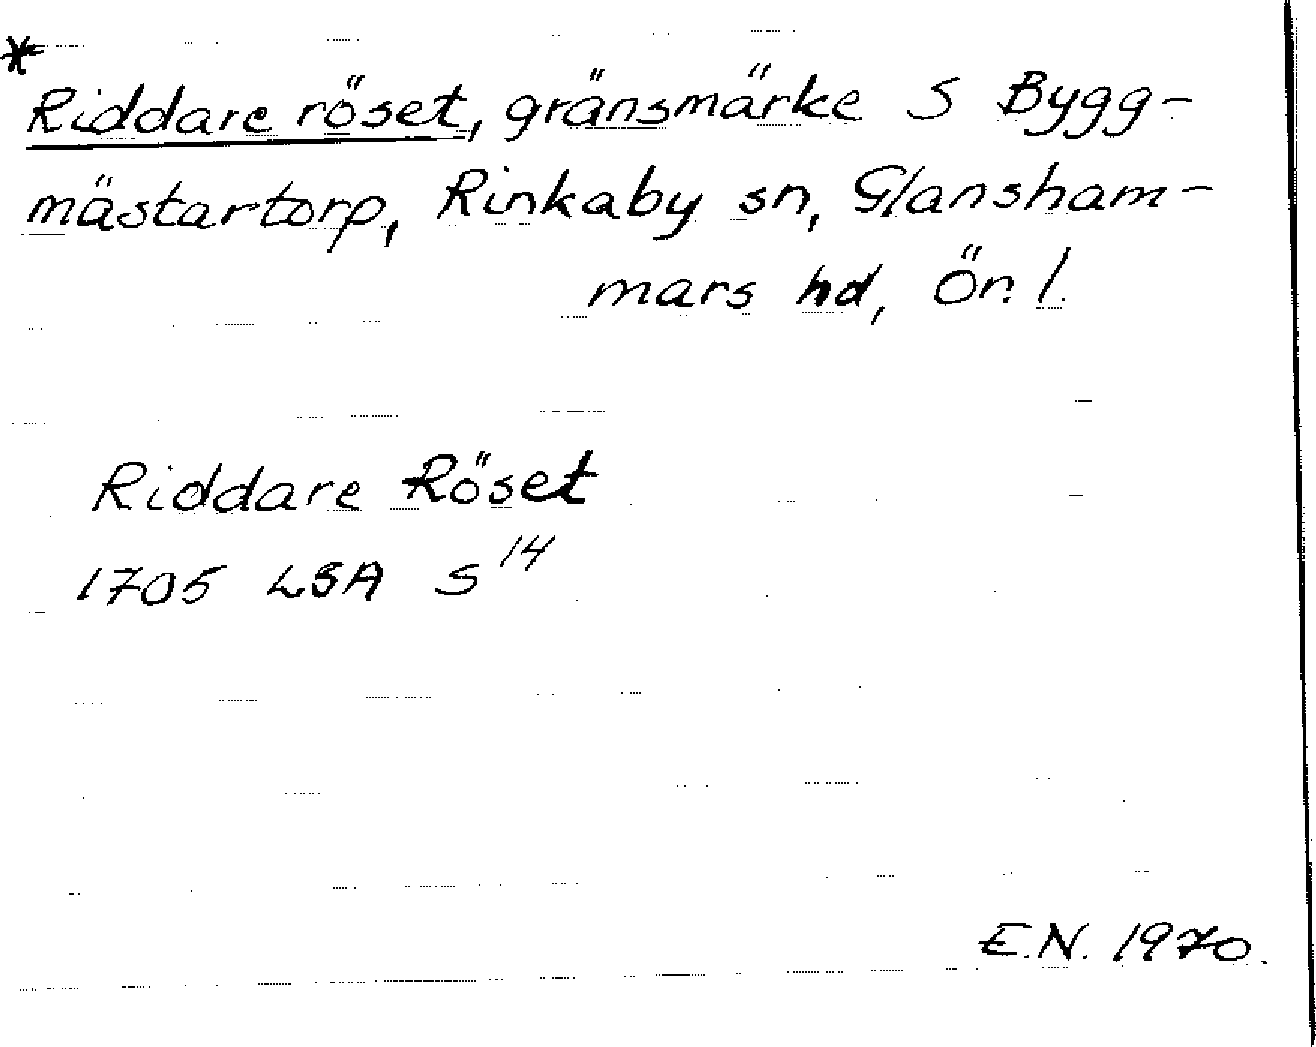 *
Riddare röset, gränsmärke S Bygg-
mästartorp, Rinkaby sn, Glansham-
mars hd, Ön. l.
Riddare Röset
1705 LSA S 14
E.N. 1970.